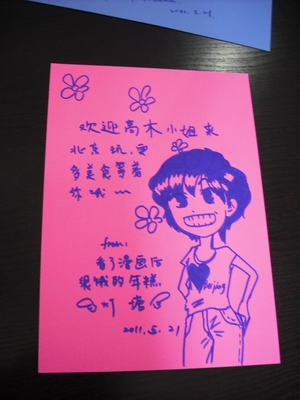 2011.5.21
欢迎高木小姐来
北京玩,更
多美食等着
你哦~~
from:
看了漫画后
很饿的年糕
2011.5.21
Beijing